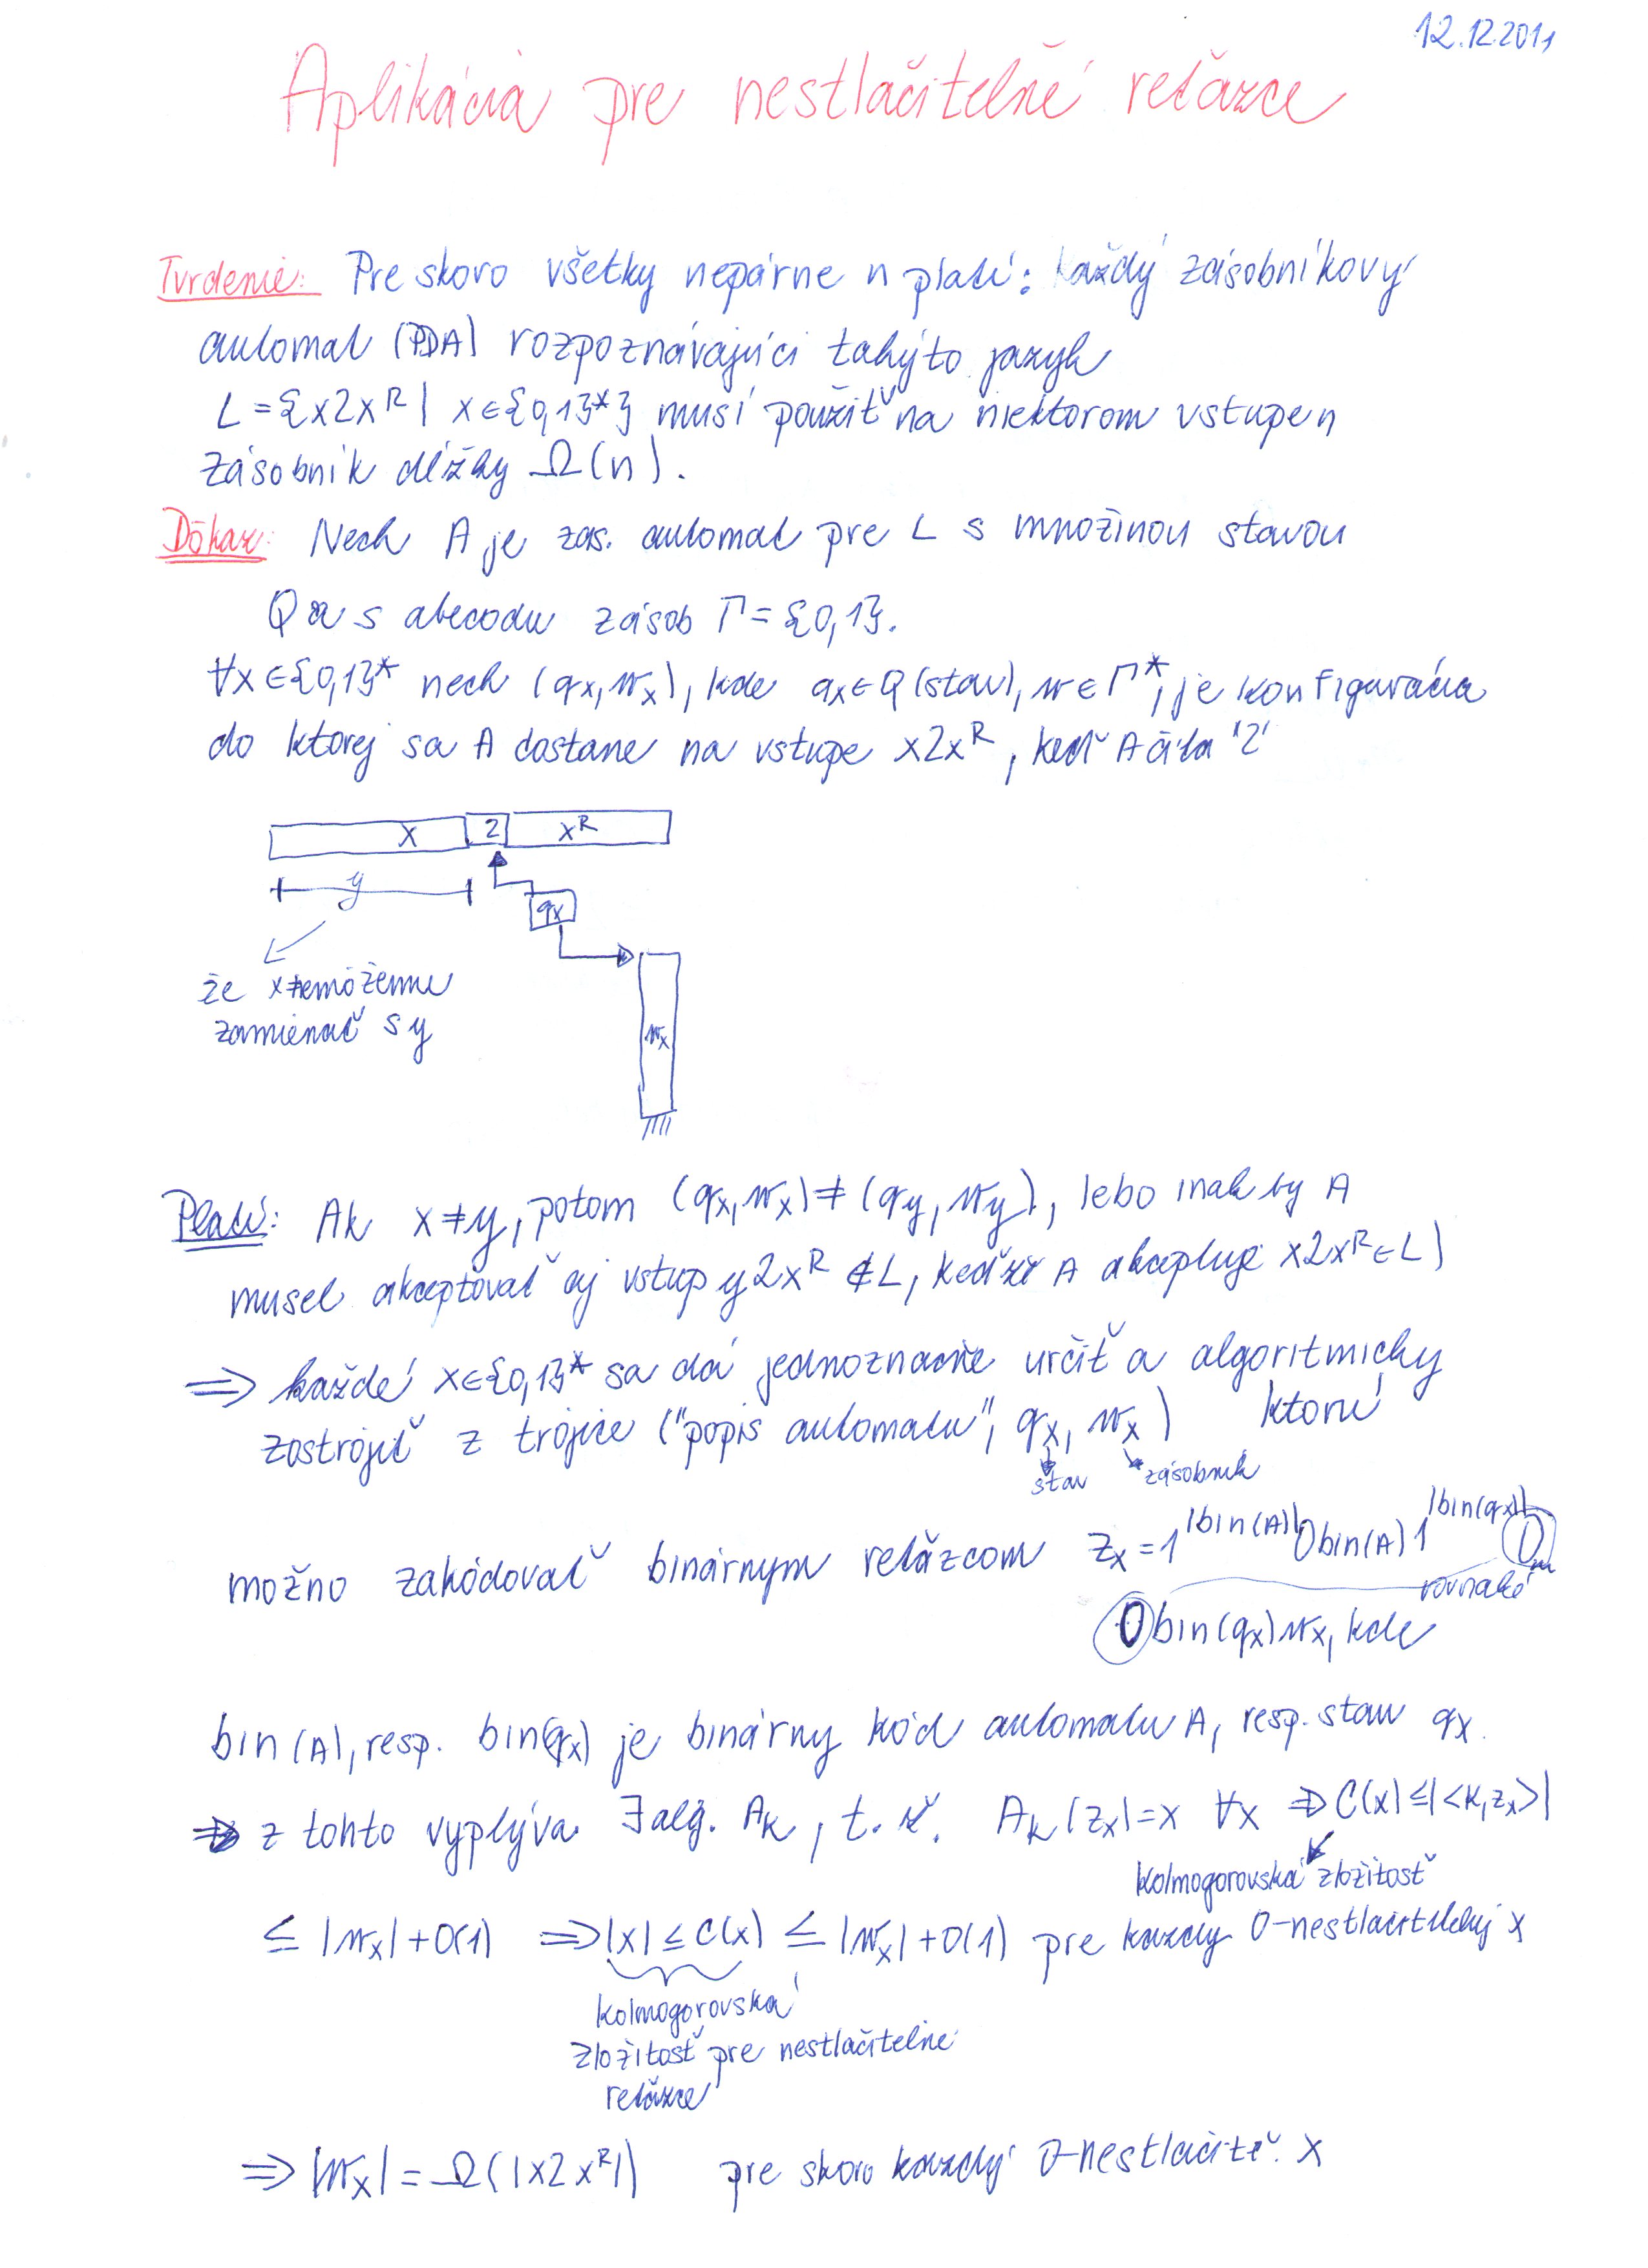 12.12.2011
Aplikácia pre nestlačiteľné reťazce
Tvrdenie: Pre skoro všetky nepárne n platí: každý zásobníkový
automat (PDA) rozpoznávajúci takýto jazyk
L = {x2x^R | x∈{0,1}*} musí použiť na niektorom vstupe n
zásobník dĺžky Ω(n).
Dôkaz: Nech A je zas. automat pre L s množinou stavou
Q a s abecodu zásob Γ = {0,1}.
∀x∈{0,1}* nech (q_x, w_x), kde q_x∈Q (stav), w∈Γ*, je konfigurácia
do ktorej sa A dostane na vstupe x2x^R, keď A číta '2'
x 2 x^R
y
q_x
že x nemôžeme
zamienať s y
w_x
Platí: Ak x≠y, potom (q_x, w_x) ≠ (q_y, w_y), lebo inak by A
musel akceptovať aj vstup y2x^R ∉ L, keďže A akceptuje x2x^R ∈ L)
⇒ každé x∈{0,1}* sa dá jednoznačne určiť a algoritmicky
zostrojiť z trojice ("popis automatu", q_x, w_x) ktorú
stav zásobník
možno zakódovať binárnym reťazcom z_x = 1^|bin(A)| 0 bin(A) 1^|bin(q_x)| 0
rovnaké
0 bin(q_x) w_x, kde
bin(A), resp. bin(q_x) je binárny kód automatu A, resp. stavu q_x.
⇒ z tohto vyplýva ∃ alg. A_k, t. ž. A_k(z_x) = x ∀x ⇒ C(x) ≤ |<k, z_x>|
kolmogorovská zložitosť
≤ |w_x| + O(1) ⇒ |x| ≤ C(x) ≤ |w_x| + O(1) pre každý 0-nestlačiteľný x
kolmogorovská
zložitosť pre nestlačiteľné
reťazce
⇒ |w_x| = Ω(|x2x^R|) pre skoro každý 0-nestlačiteľ. x